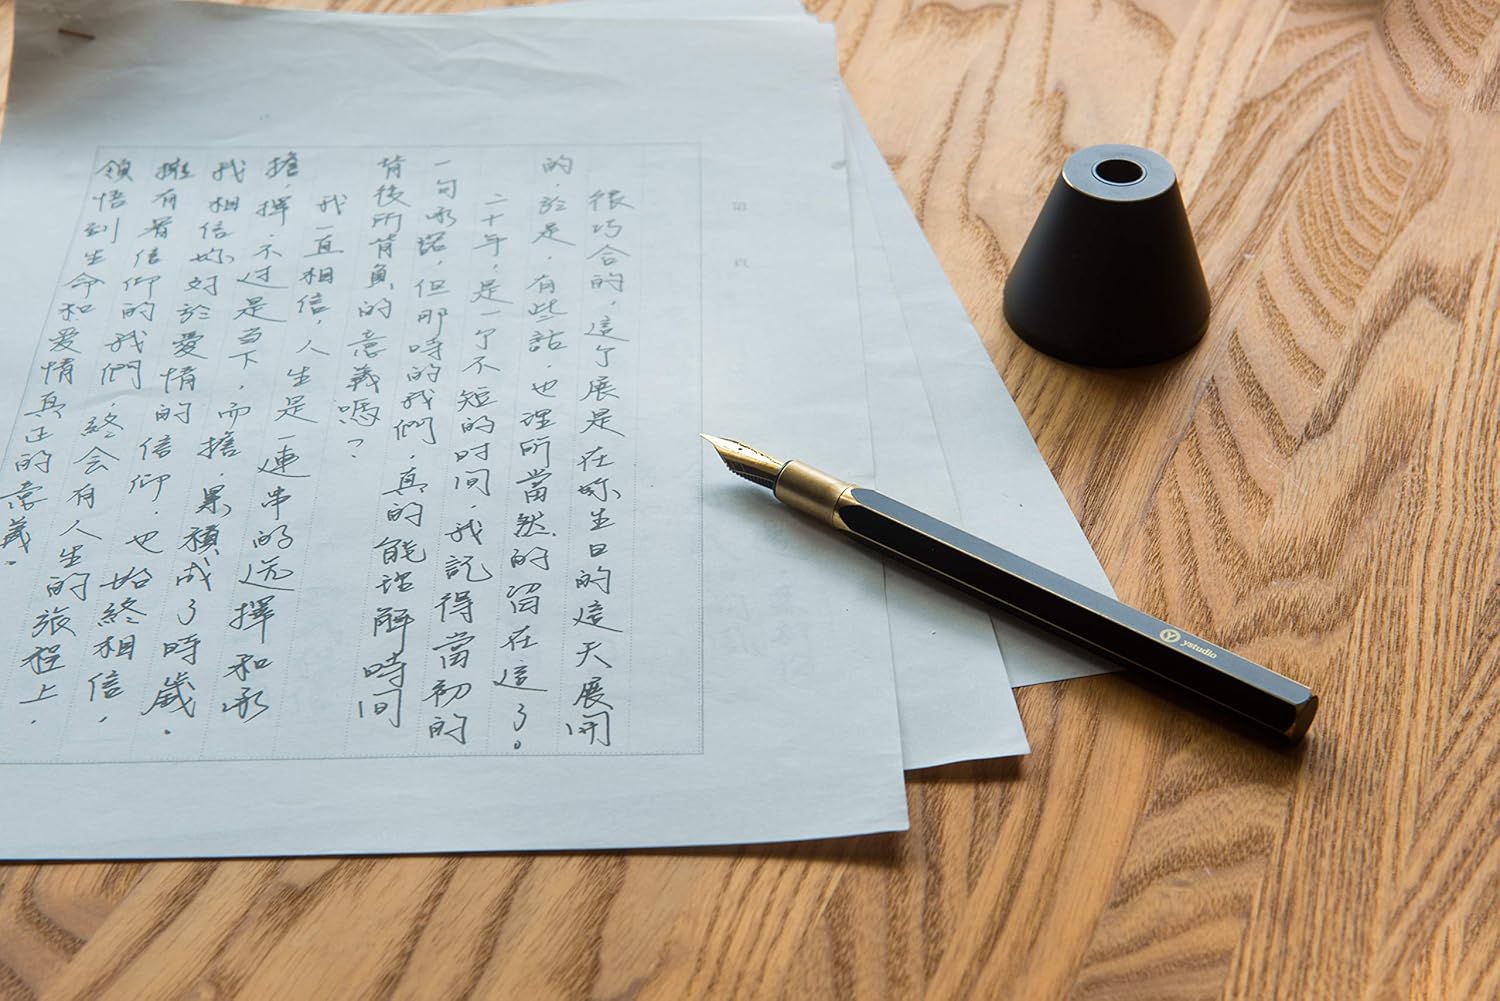 很巧合的，這个展是在妳生日的這天展開
的，於是，有些話，也理所當然的留在這了。
二十年，是一个不短的时间，我記得當初的
一句承諾，但那時的我們，真的能理解時间
背後所背負的意義嗎？
我一直相信，人生是一連串的选擇和承
擔，擇，不过是当下，而擔，累積成了時歲．
我相信妳对於愛情的信仰，也始終相信，
擁有著信仰的我們，終会有人生的旅程上，
領悟到生命和爱情真正的意義．
ystudio